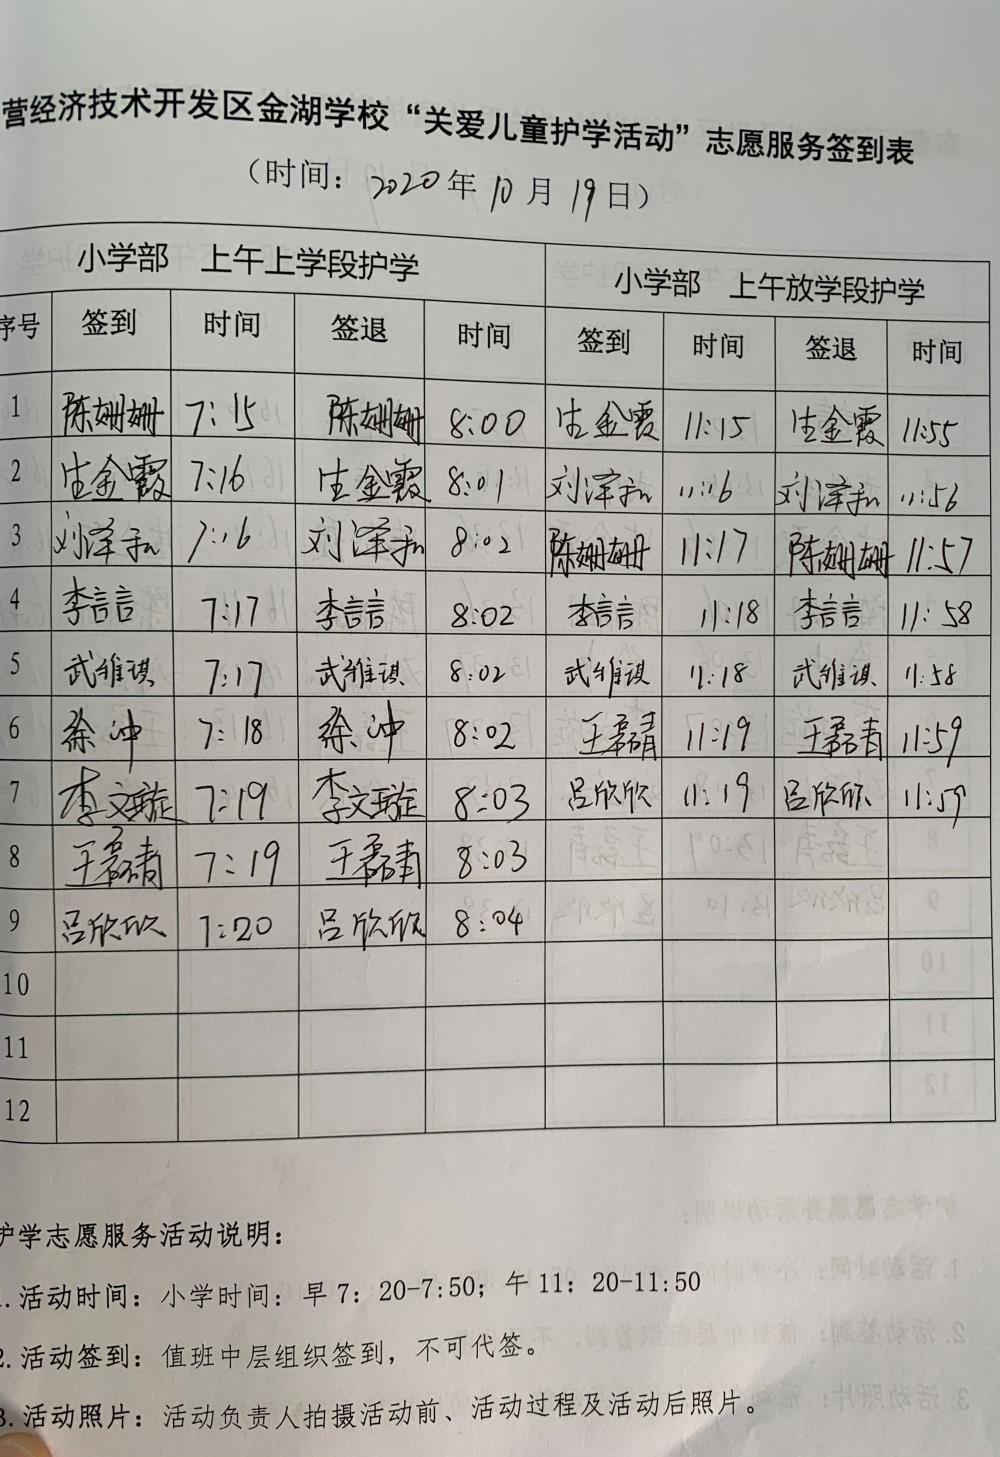 营经济技术开发区金湖学校“关爱儿童护学活动”志愿服务签到表
（时间：2020年10月19日）
小学部 上午上学段护学 小学部 上午放学段护学
序号 签到 时间 签退 时间 签到 时间 签退 时间
1 陈姗姗 7:15 陈姗姗 8:00 生金霞 11:15 生金霞 11:55
2 生金霞 7:16 生金霞 8:01 刘泽 11:16 刘泽 11:56
3 刘泽 7:16 刘泽 8:02 陈姗姗 11:17 陈姗姗 11:57
4 李言言 7:17 李言言 8:02 李言言 11:18 李言言 11:58
5 武维琪 7:17 武维琪 8:02 武维琪 11:18 武维琪 11:58
6 徐冲 7:18 徐冲 8:02 王磊青 11:19 王磊青 11:59
7 李文璇 7:19 李文璇 8:03 吕欣欣 11:19 吕欣欣 11:59
8 王磊青 7:19 王磊青 8:03
9 吕欣欣 7:20 吕欣欣 8:04
10
11
12
护学志愿服务活动说明：
1.活动时间：小学时间：早7：20-7:50；午11：20-11:50
2.活动签到：值班中层组织签到，不可代签。
3.活动照片：活动负责人拍摄活动前、活动过程及活动后照片。